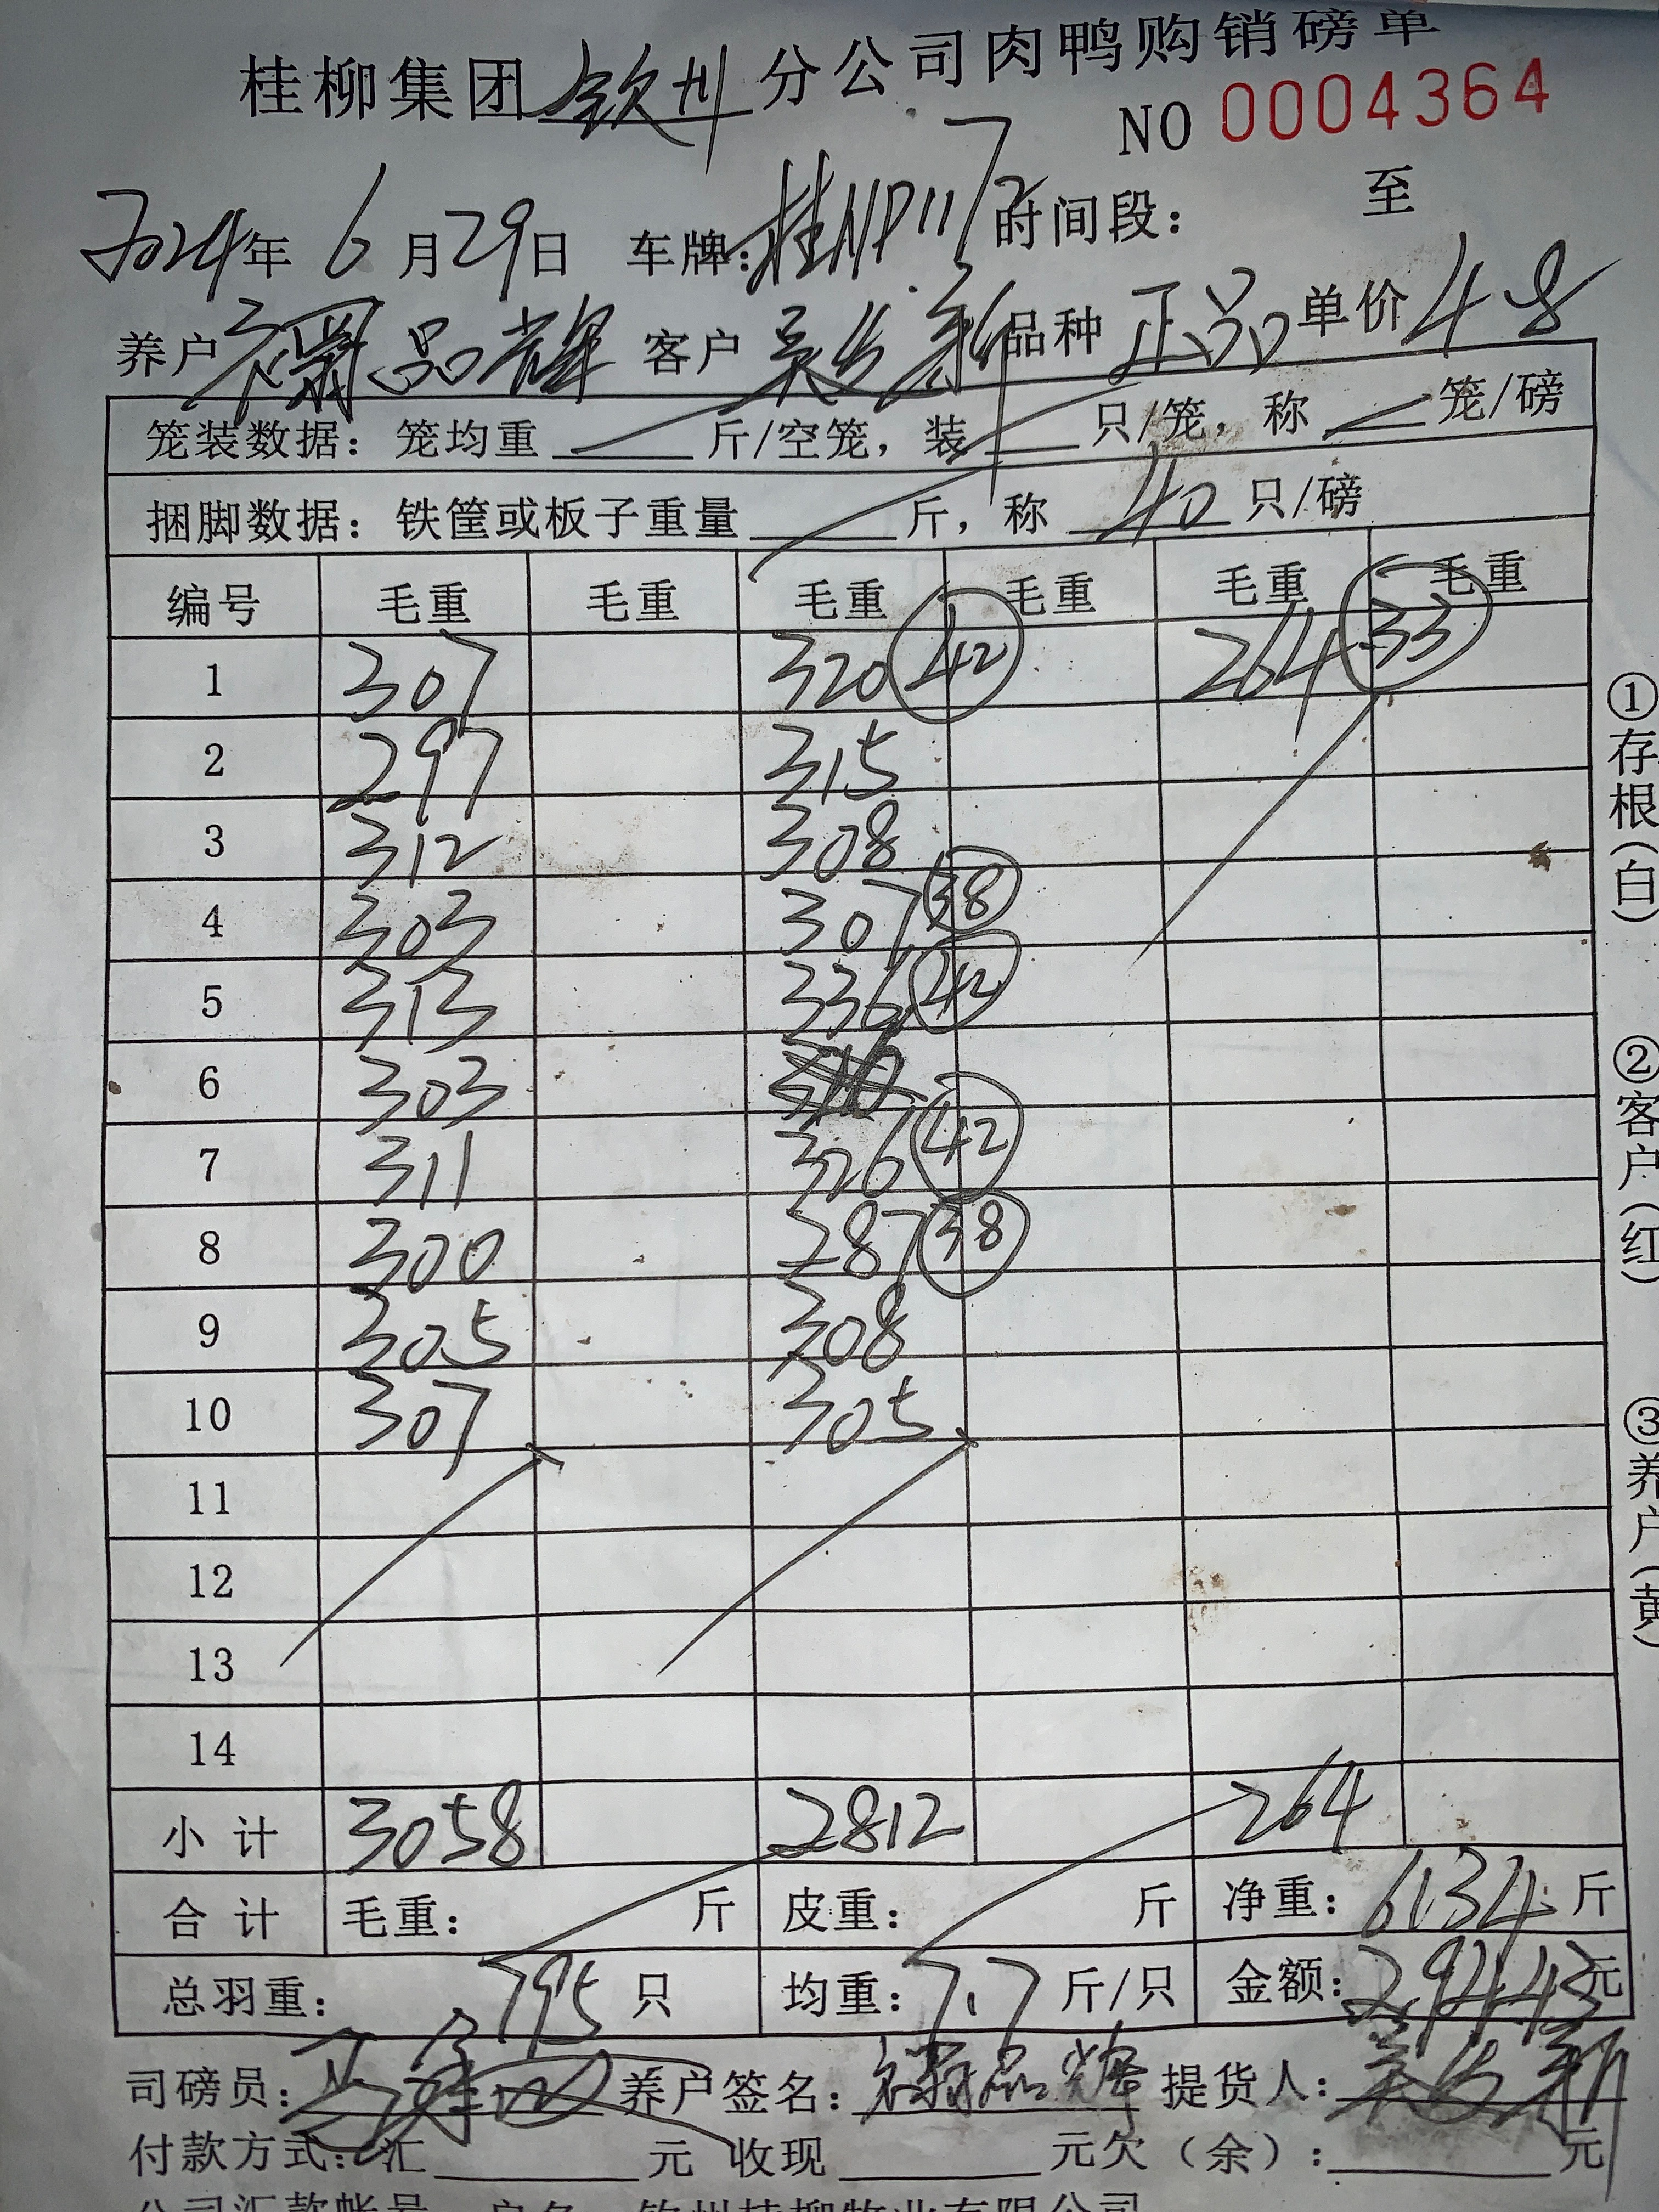 桂柳集团钦州分公司肉鸭购销磅单
NO 0004364
2024年 6月29日 车牌:桂NP1172 时间段: 至
养户 品辉 客户 吴 新 品种 正品 单价 4.8
笼装数据: 笼均重 斤/空笼, 装 只/笼, 称 笼/磅
捆脚数据: 铁筐或板子重量 斤, 称 40 只/磅
编号 毛重 毛重 毛重 毛重 毛重 毛重
1 307 320 42 264 33
2 297 315
3 312 308
4 303 307 38
5 313 336 42
6 303
7 311 326 42
8 300 287 38
9 305 308
10 307 305
11
12
13
14
小计 3058 2812 264
合计 毛重: 斤 皮重: 斤 净重: 6134 斤
总羽重: 795 只 均重: 7.7 斤/只 金额: 29443元
司磅员: 养户签名: 品辉 提货人: 吴 新
付款方式: 汇 元 收现 元欠(余): 元
公司汇款帐号 户名 钦州桂柳牧业有限公司
①存根(白)
②客户(红)
③养户(黄)